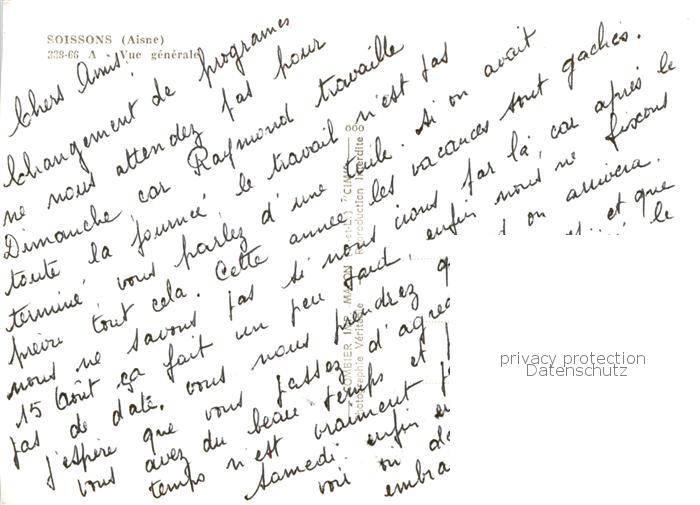 SOISSONS (Aisne)
339-66 A - Vue générale
Chers Amis.
Changement de programes
ne nous attendez pas pour
Dimanche, car Raymond travaille
toute la journée, le travail n'est pas
terminé, vous parlez d'une tuile. Si on avait
prévu tout cela. Cette année les vacances sont gachées.
nous ne savons pas si nous irons par là, car après le
15 Août ça fait un peu tard, enfin nous ne fixons
pas de date. vous nous prendrez q on arrivera.
J'espère que vous passez d'agréa et que
vous avez du beau temps et le
temps n'est vraiment
Samedi enfin
voir
embra
COMBIER IMP. MACON "CIM"
Photographie Véritable Reproduction Interdite
privacy protection
Datenschutz